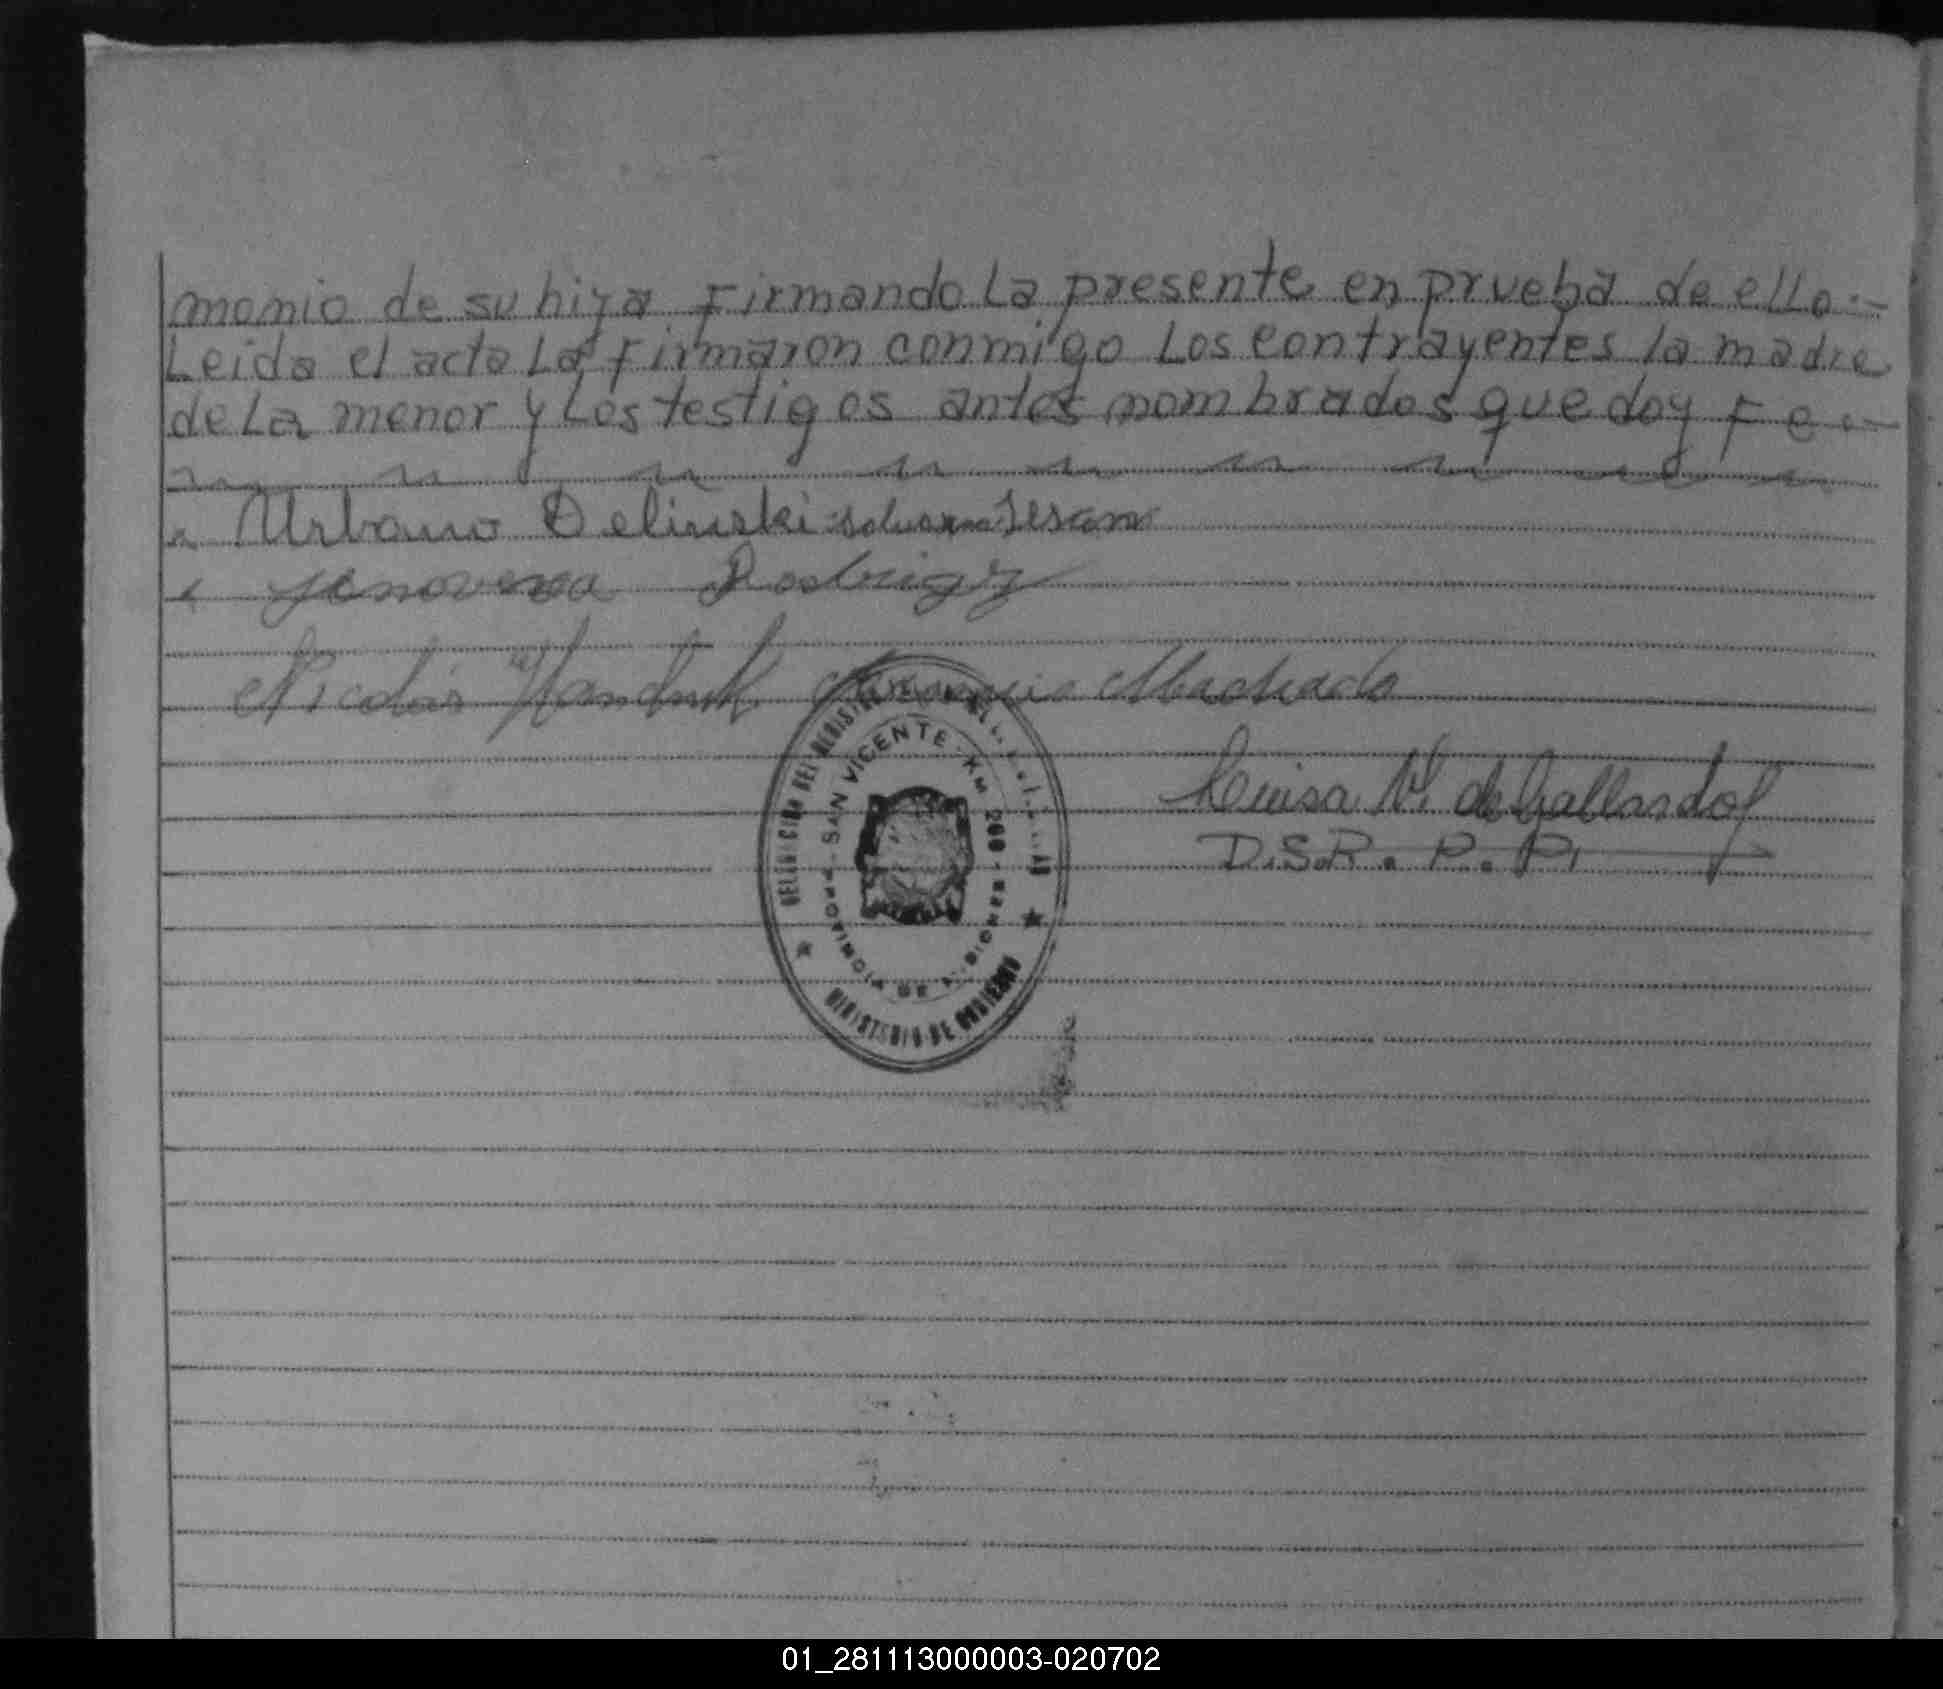 monio de su hiza Firmando La presente en prueba de ello.-
Leida el acta La Firmaron conmigo Los contrayentes la madre
de La menor y Los testigos antes nombrados que doy Fe-
Urbano Delinski
Jenoveva Rodrigz
Nicolás Machado
Luisa N. de Gallardo
D.S.R. P. P.
DELEGACION DEL REGISTRO
SAN VICENTE - Km 266 - MISIONES
PROVINCIA DE
MINISTERIO DE GOBIERNO
01_281113000003-020702